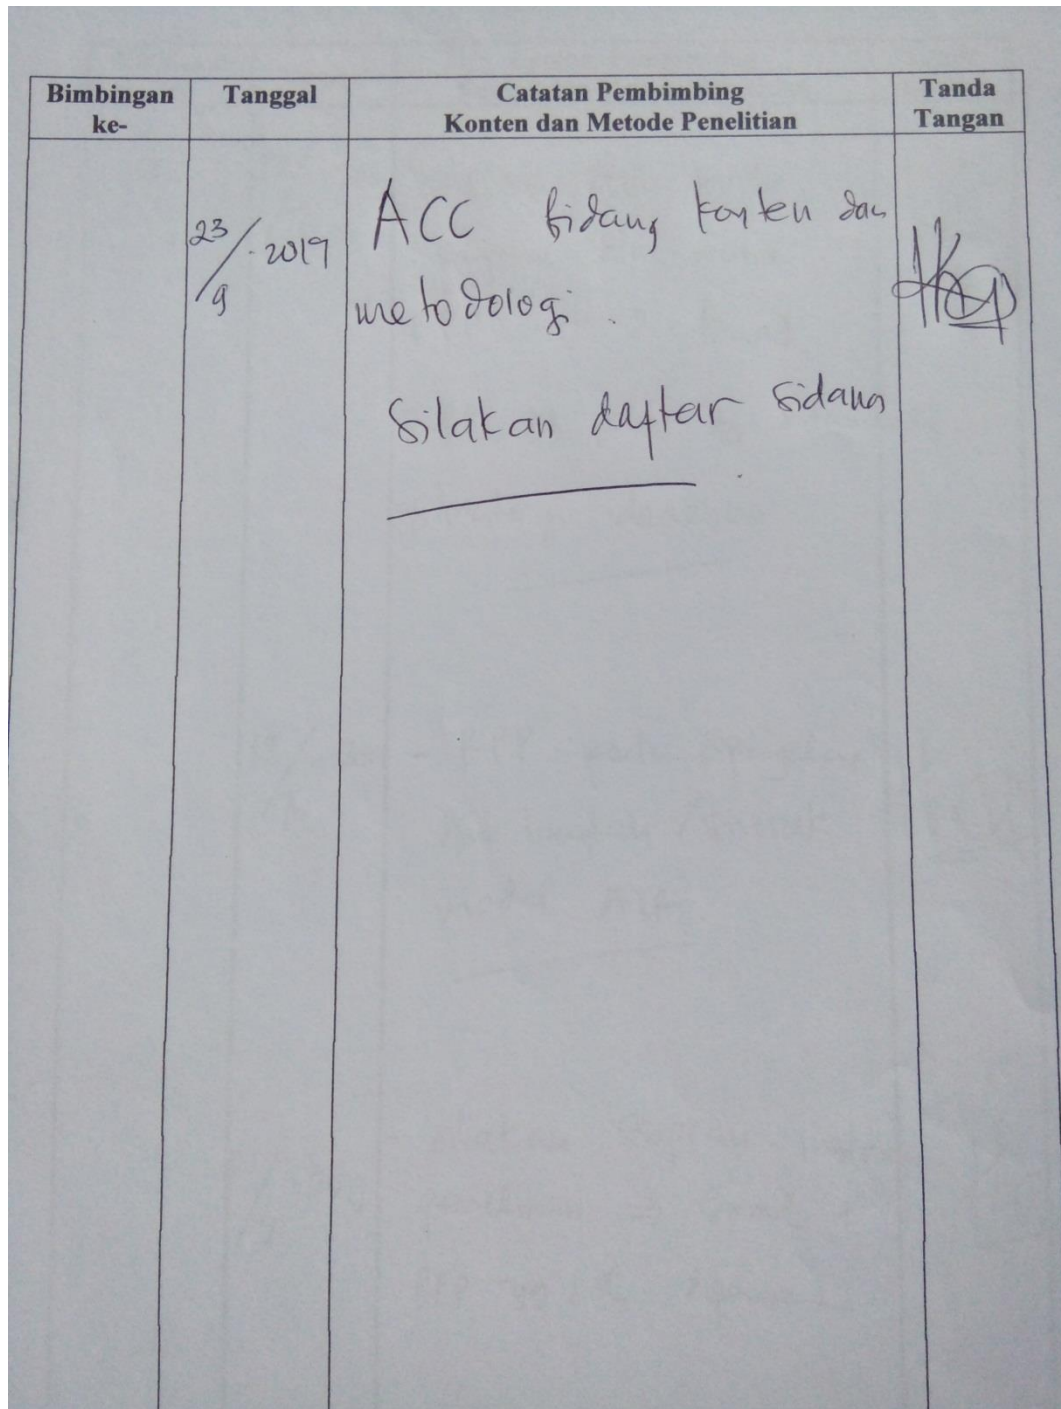 Bimbingan ke-
Tanggal
Catatan Pembimbing
Konten dan Metode Penelitian
Tanda Tangan
23/9 - 2019
ACC bidang konten dan
metodologi.
Silakan daftar sidang